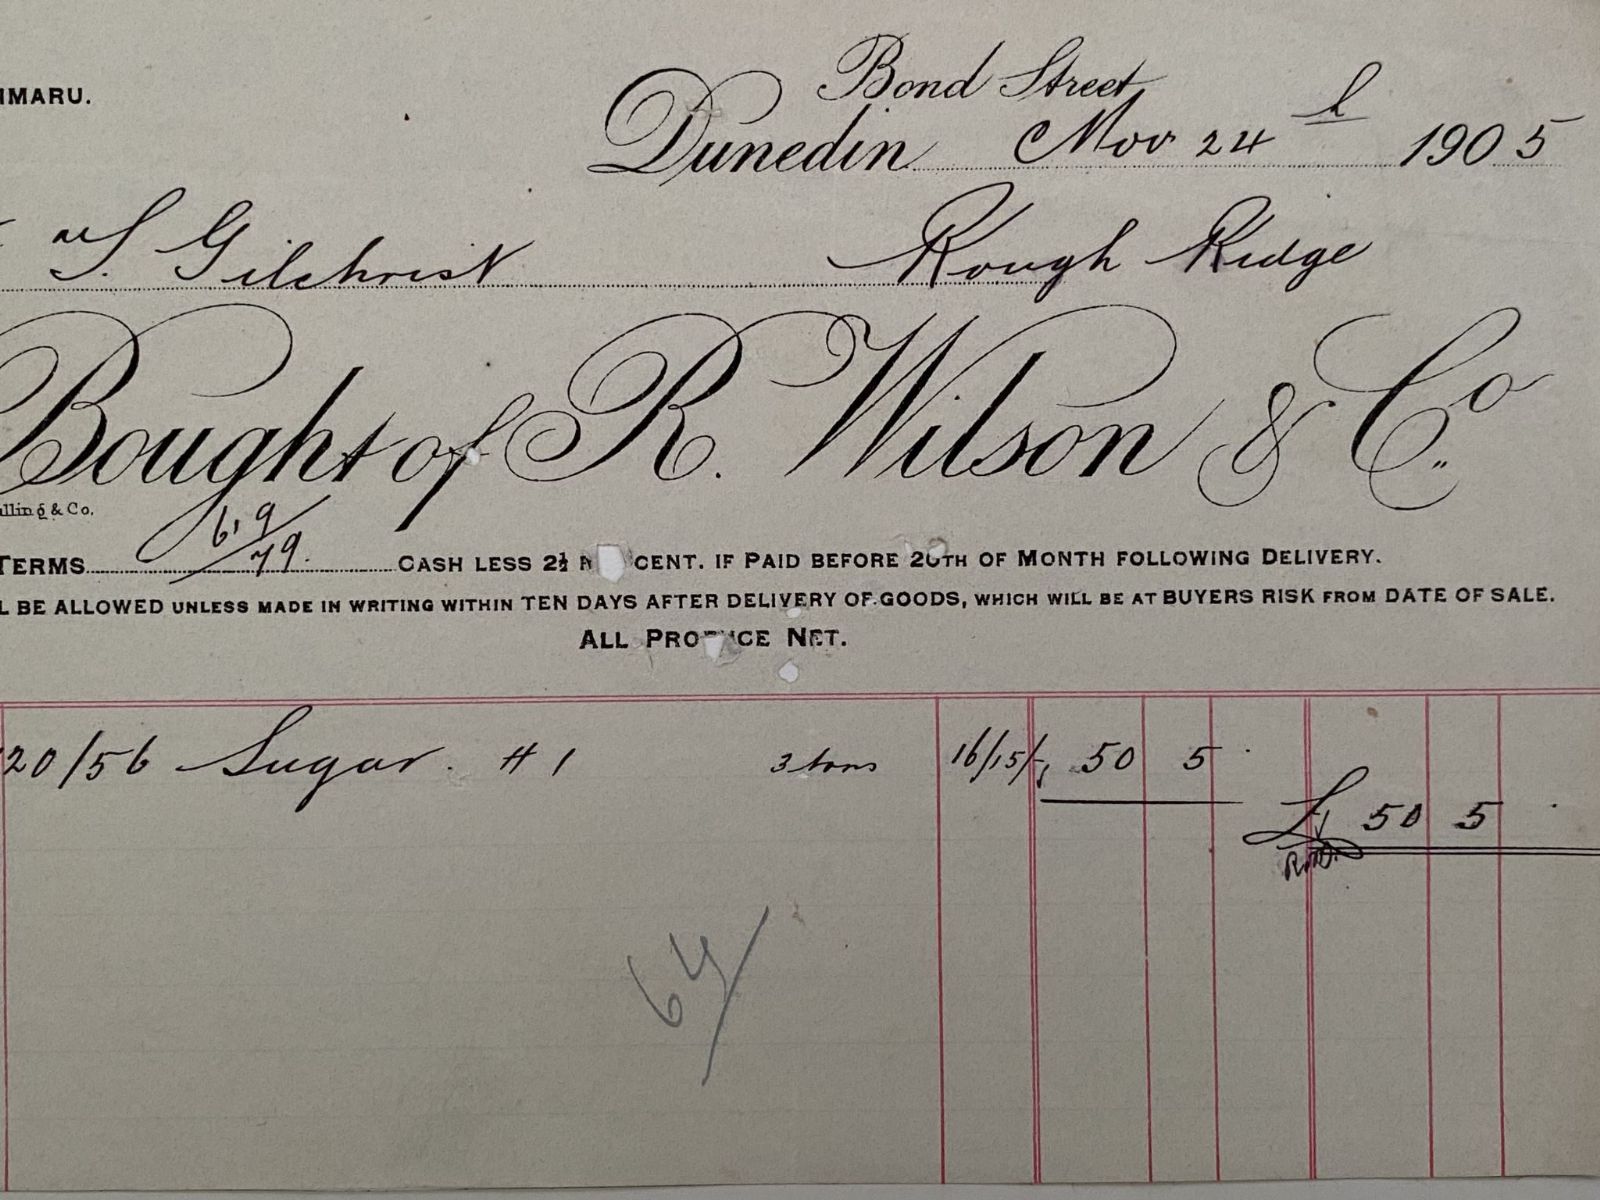 IMARU.
Bond Street
Dunedin Nov 24th 1905
S. Gilchrist Rough Ridge
Bought of R. Wilson & Co.
lling & Co.
TERMS 619/79. CASH LESS 2½ CENT. IF PAID BEFORE 20TH OF MONTH FOLLOWING DELIVERY.
L BE ALLOWED UNLESS MADE IN WRITING WITHIN TEN DAYS AFTER DELIVERY OF GOODS, WHICH WILL BE AT BUYERS RISK FROM DATE OF SALE.
ALL PRODUCE NET.
20/56 Sugar. #1 3 tons 16/15/- 50 5 .
£ 50 5 .